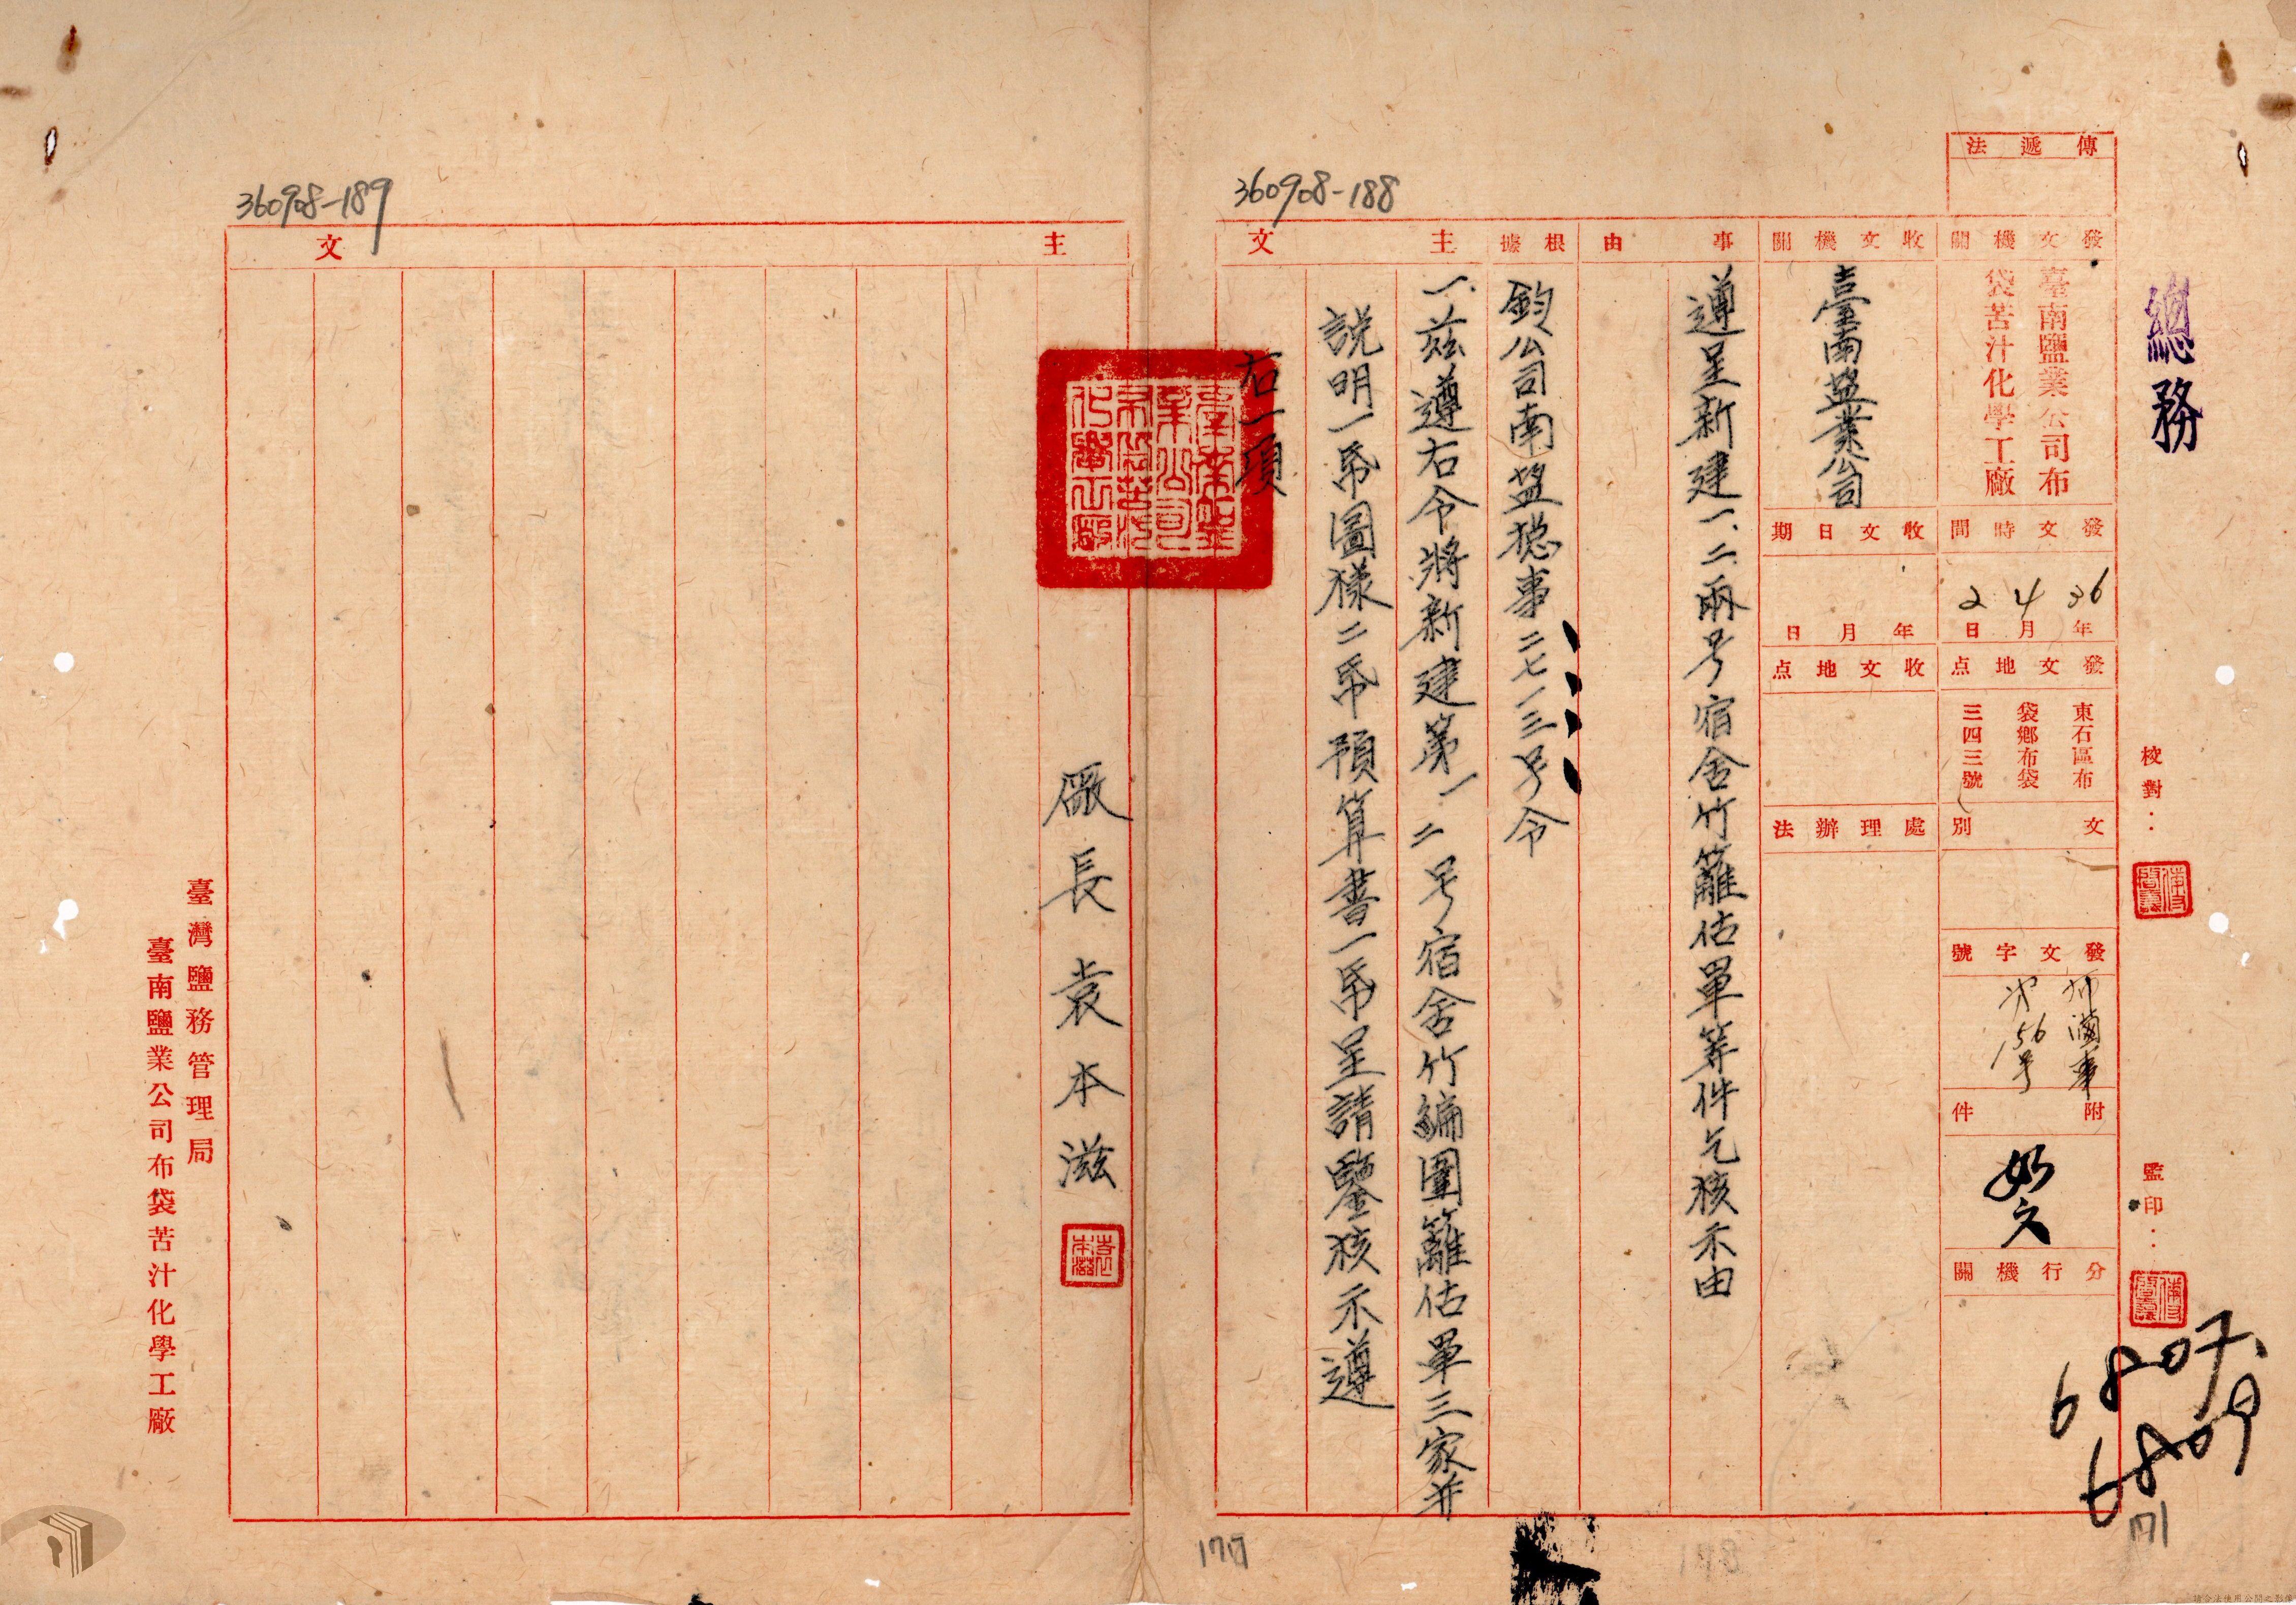 總務
校對：
監印：
6807.
6809
傳遞法
發文機關
臺南鹽業公司布
袋苦汁化學工廠
發文時間
36年4月2日
發文地点
東石區布
袋鄉布袋
三四三號
文別
發文字號
布滷事
第156号
附件
如文
分行機關
收文機關
臺南盐業公司
收文日期
年月日
收文地点
處理辦法
事由
遵呈新建一、二兩号宿舍竹籬估單等件乞核示由
根據
鈞公司南盐總事二七一三号令
主文
360908-188
一.茲遵右令將新建第一二号宿舍竹編圍籬估單三家并
説明一帋圖樣二帋預算書一帋呈請鑒核示遵
右一項
臺南鹽業公司布袋苦汁化學工廠
主文
360908-189
廠長袁本滋
袁本滋
臺灣鹽務管理局
臺南鹽業公司布袋苦汁化學工廠
171